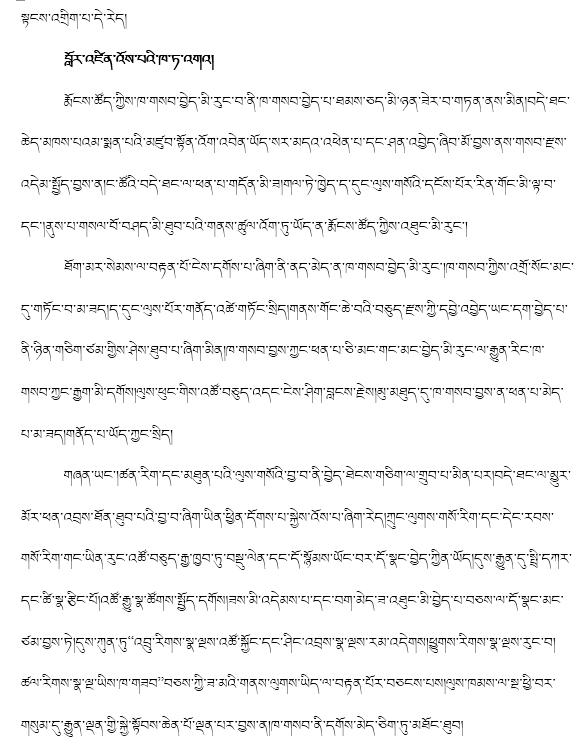 སྟངས་འགྲིག་པ་དེ་རེད།
བློར་འཛིན་འོས་པའི་ཁ་ཏ་འགའ།
རྨོངས་ཚོད་ཀྱིས་ཁ་གསབ་བྱེད་མི་རུང་བ་ནི་ཁ་གསབ་བྱེད་པ་ཐམས་ཅད་མི་ཉན་ཟེར་བ་གཏན་ནས་མིན།བདེ་ཐང་
ཆེད་མཁས་པའམ་སྨན་པའི་མཛུབ་སྟོན་འོག་འབེན་ཡོད་སར་མདའ་འཕེན་པ་དང་ཤན་འབྱེད་ཞིབ་མོ་བྱས་ནས་གསབ་རྫས་
འདེམ་སྤྱོད་བྱས་ན།ང་ཚོའི་བདེ་ཐང་ལ་ཕན་པ་གདོན་མི་ཟ།གལ་ཏེ་ཁྱེད་ད་དུང་ལུས་གསོའི་དངོས་པོར་རིན་གོང་མི་ལྟ་བ་
དང་།ནུས་པ་གསལ་བོ་བཤད་མི་ཐུབ་པའི་གནས་ཚུལ་འོག་ཏུ་ཡོད་ན་རྨོངས་ཚོད་ཀྱིས་འཐུང་མི་རུང་།
ཐོག་མར་སེམས་ལ་བརྟན་པོ་ངེས་དགོས་པ་ཞིག་ནི་ནད་མེད་ན་ཁ་གསབ་བྱེད་མི་རུང་།ཁ་གསབ་ཀྱིས་འགྲོ་སོང་མང་
དུ་གཏོང་བ་མ་ཟད།ད་དུང་ལུས་པོར་གནོད་འཚེ་གཏོང་སྲིད།གནས་གོང་ཆེ་བའི་བཅུད་རྫས་ཀྱི་དབྱེ་འབྱེད་ཡང་དག་བྱེད་པ་
ནི་ཉིན་གཅིག་ཙམ་གྱིས་ཤེས་ཐུབ་པ་ཞིག་མིན།ཁ་གསབ་བྱས་ཀྱང་ཕན་པ་ཅི་མང་གང་མང་བྱེད་མི་རུང་ལ་རྒྱུན་རིང་ཁ་
གསབ་ཀྱང་རྒྱག་མི་དགོས།ལུས་ཕུང་གིས་འཚོ་བཅུད་འདང་ངེས་ཤིག་བླངས་རྗེས།མུ་མཐུད་དུ་ཁ་གསབ་བྱས་ན་ཕན་པ་མེད་
པ་མ་ཟད།གནོད་པ་ཡོད་ཀྱང་སྲིད།
གཞན་ཡང་།ཚན་རིག་དང་མཐུན་པའི་ལུས་གསོའི་བྱ་བ་ནི་བྱེད་ཐེངས་གཅིག་ལ་གྲུབ་པ་མིན་པར།བདེ་ཐང་ལ་མྱུར་
མོར་ཕན་འབྲས་ཐོན་ཐུབ་པའི་བྱ་བ་ཞིག་ཡིན་ཕྱིན་དོགས་པ་སྐྱེས་འོས་པ་ཞིག་རེད།ཀྲུང་ལུགས་གསོ་རིག་དང་དེང་རབས་
གསོ་རིག་གང་ཡིན་རུང་འཚོ་བཅུད་རྒྱ་ཁྱབ་ཏུ་བསྡུ་ལེན་དང་དོ་སྙོམས་ཡོང་བར་དོ་སྣང་བྱེད་ཀྱིན་ཡོད།དུས་རྒྱུན་དུ་སྤྲི་དཀར་
དང་ཚི་སྣ་རྩིང་པོ།འཚོ་རྒྱུ་སྣ་ཚོགས་སྤྱོད་དགོས།ཟས་མི་འདེམས་པ་དང་བག་མེད་ཟ་འཐུང་མི་བྱེད་པ་བཅས་ལ་དོ་སྣང་མང་
ཙམ་བྱས་ཏེ།དུས་ཀུན་ཏུ“འབྲུ་རིགས་སྣ་ལྔས་འཚོ་སྐྱོང་དང་ཤིང་འབྲས་སྣ་ལྔས་རམ་འདེགས།ཕྱུགས་རིགས་སྣ་ལྔས་རུང་བ།
ཚལ་རིགས་སྣ་ལྔ་ཡིས་ཁ་གཟབ”བཅས་ཀྱི་ཟ་མའི་གནས་ལུགས་ཡིད་ལ་བརྟན་པོར་བཅངས་པས།ལུས་ཁམས་ལ་སྔ་ཕྱི་བར་
གསུམ་དུ་རྒྱུན་ལྡན་གྱི་སྐྱེ་སྟོབས་ཆེན་པོ་ལྡན་པར་བྱས་ན།ཁ་གསབ་ནི་དགོས་མེད་ཅིག་ཏུ་མཐོང་ཐུབ།